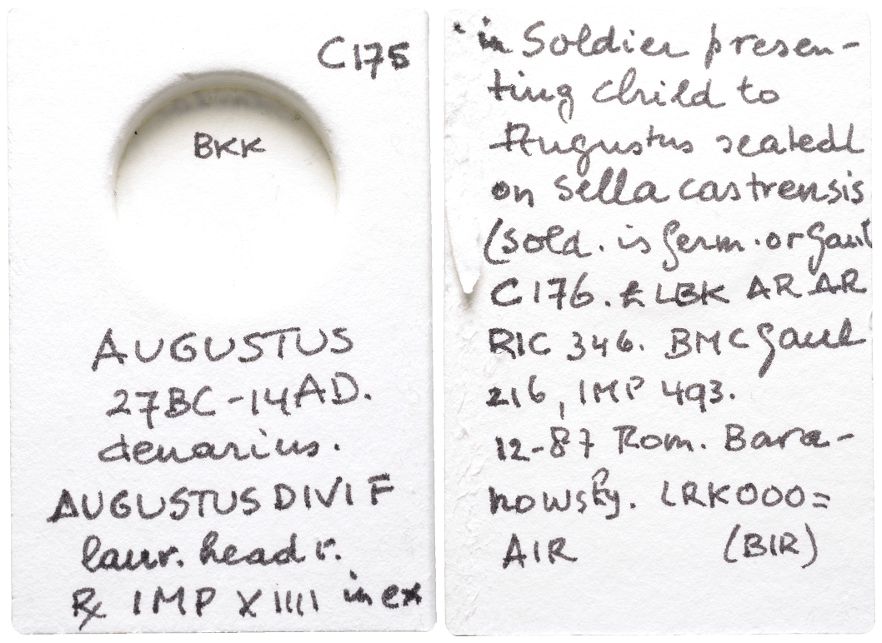 C175
BKK
AUGUSTUS
27BC-14AD.
denarius.
AUGUSTUS DIVI F
laur. head r.
R IMP XIIII in ex
in Soldier presen-
ting child to
Augustus seated
on Sella castrensis
(sold. is Germ. or Gaul
C176. £ LBK AR AR
RIC 346. BMC Gaul
216, IMP 493.
12-87 Rom. Bara-
nowsky. LRK000=
AIR (BIR)